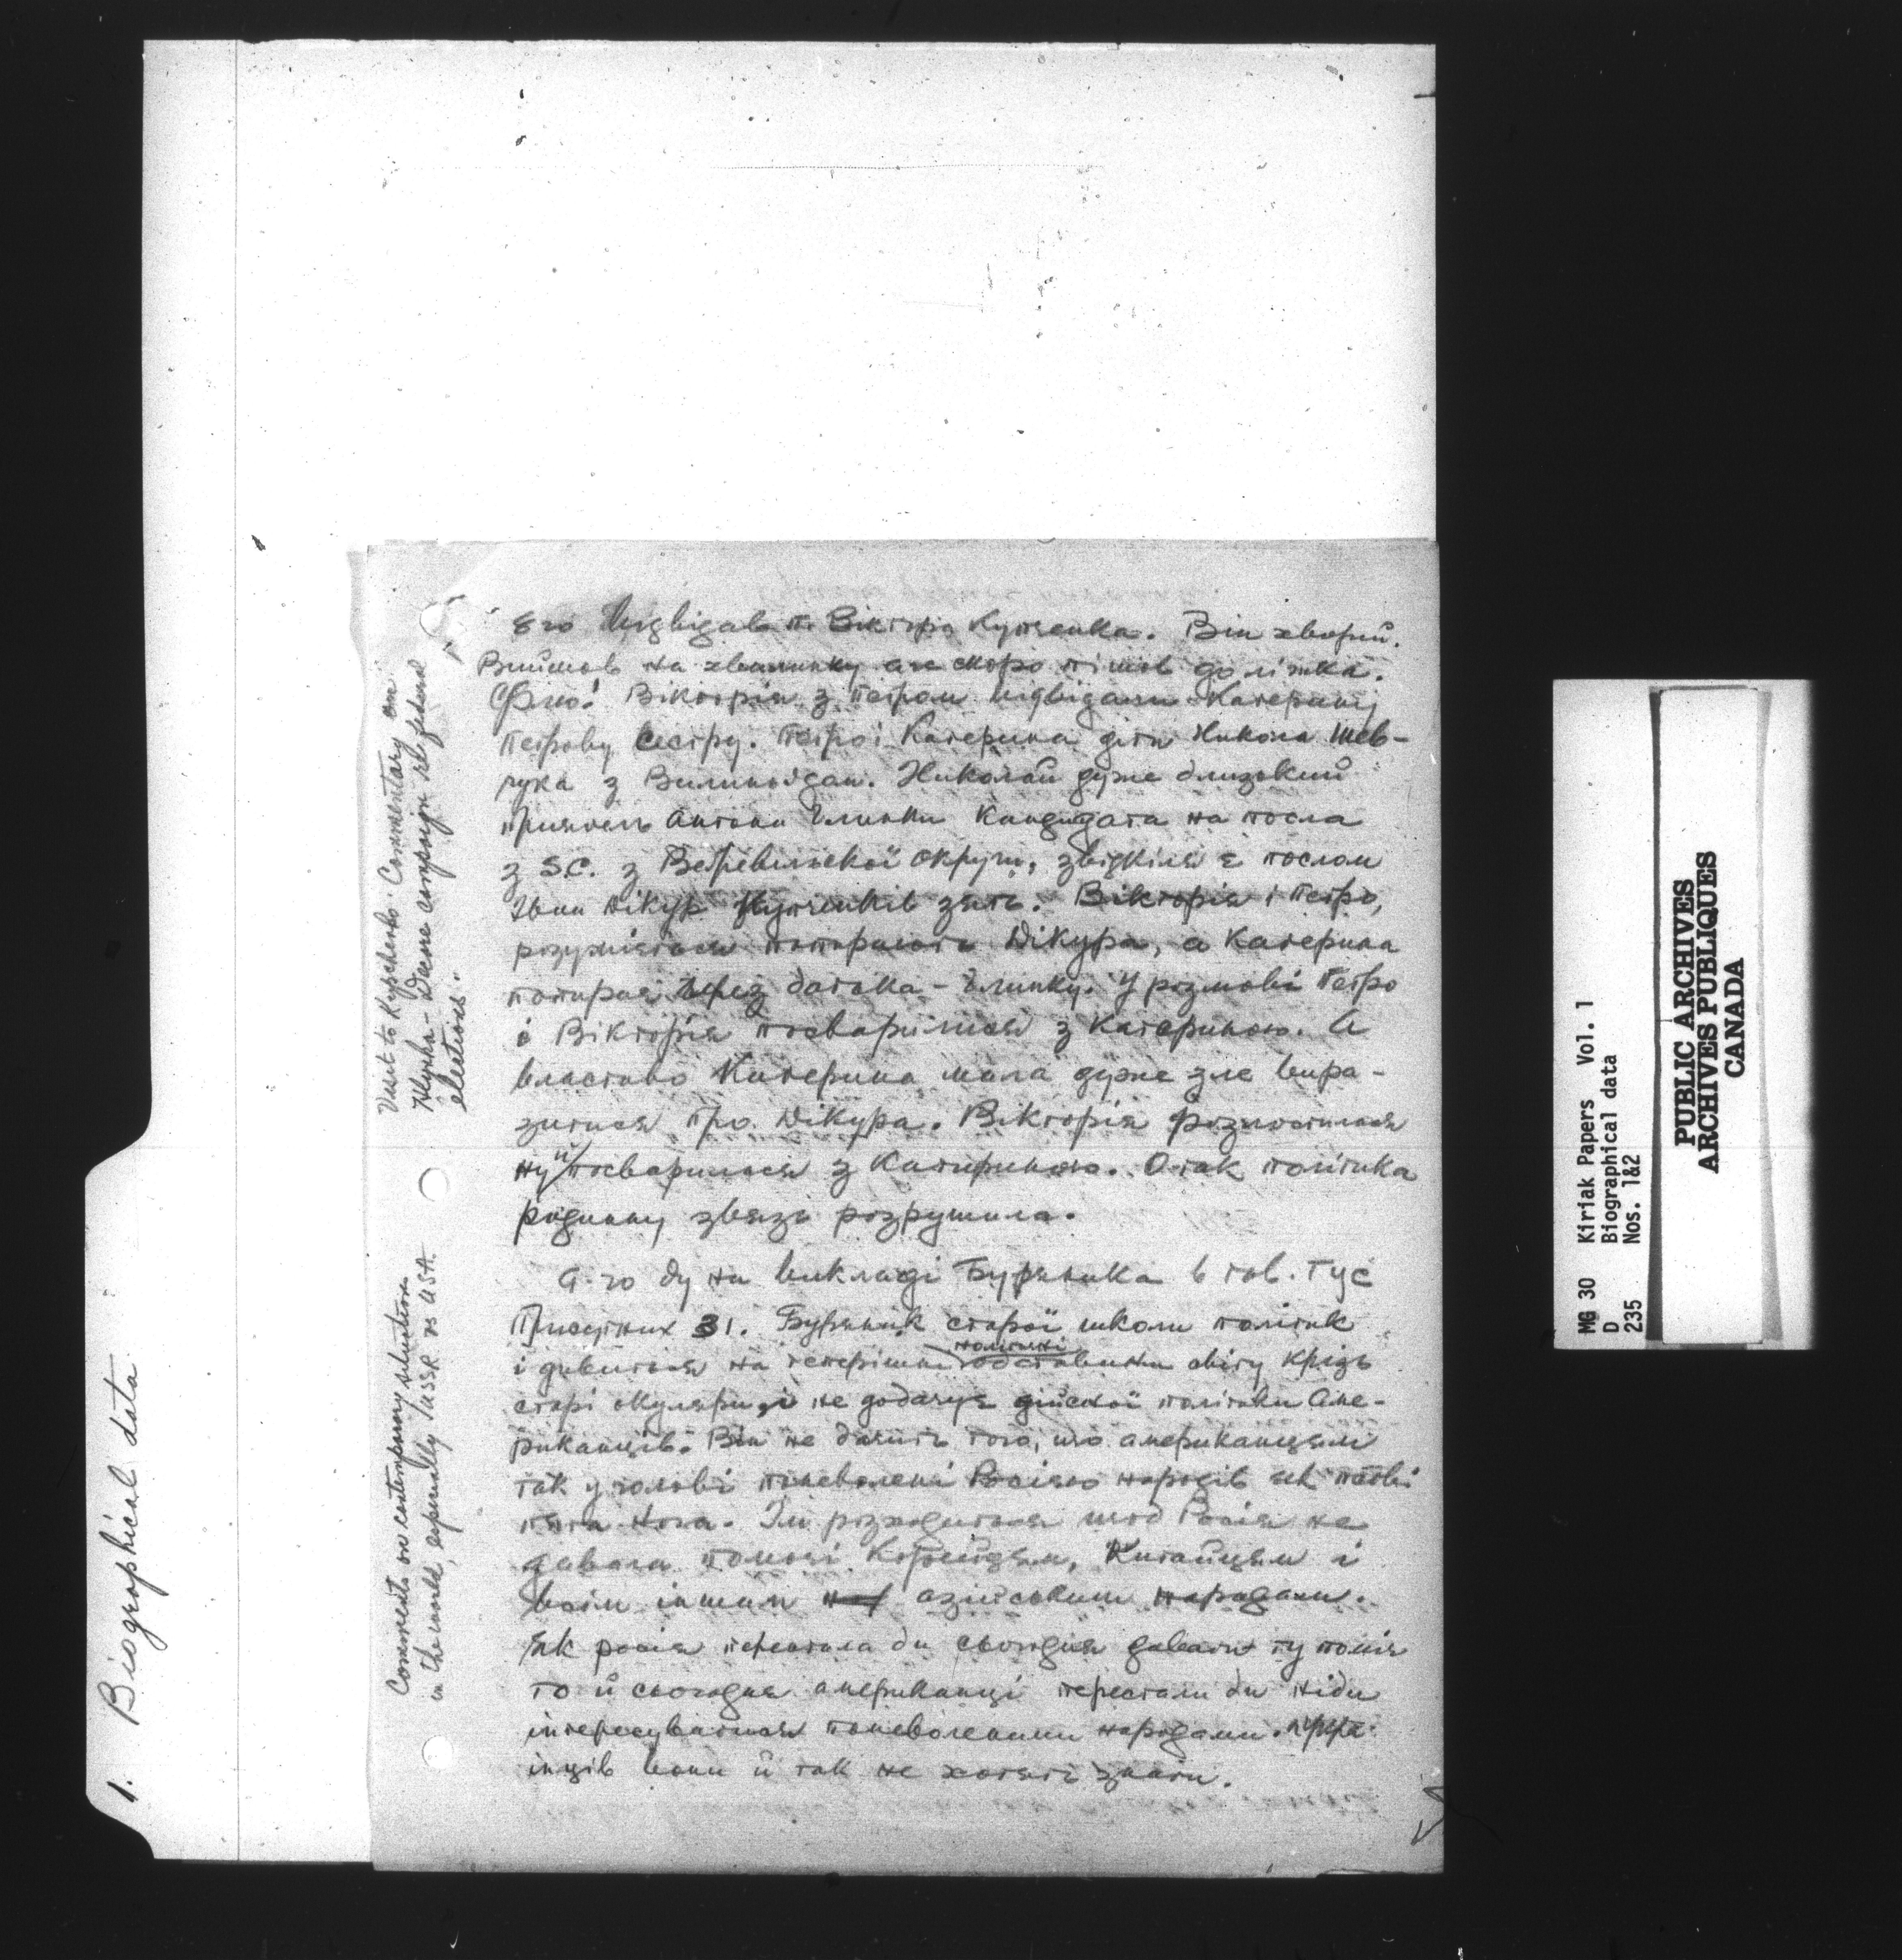 8го відвідав п. Віктора Купченка. Він хворий.
Вийшов на хвилинку але скоро пішов до ліжка.
Вікторія з Петром відвідали Катерину
Петрову сестру. Петро і Катерина діти Никола Шев-
чука з Вилингдон. Николай дуже близький
приятель Антона Глинки кандидата на посла
з S.C. з Веґревильскої округи, звідкіля є послом
Іван Дікур Купченків зять. Вікторія і Петро,
розуміється попирають Дікура, а Катерина
попирає через батька - Глинку. У розмові Петро
і Вікторія посварилися з Катериною. А
властиво Катерина мала дуже зле вира-
зитися про Дікура. Вікторія розлостилася
ну й посварилася з Катериною. Отак політика
родинну звязь розрушила.
9-го був на викладі Буряника в тов. ТУС
Присутних 31. Буряник старої школи політик
і дивиться на теперішні політичні обставини світу крізь
старі окуляри, і не добачує дійсної політики Аме-
риканців. Він не бачить того, що американцям
так у голові поневолені Росією народів як пятa нога. Їм розходиться щоб Росія не
давала помочі Корейцям, Китайцям і
всім іншим азійським народам.
Як росія перестала би сьогодня давати ту поміч
то й сьогодня американці перестали би ніби
інтересуватися поневоленими народами. Укра-
інців вони й так не хотять знати.
Visit to Kypchenko. Commentary on
Hlynka - Decore campaign re federal
elections.
Comments on contemporary situation
in the world, especially USSR vs USA.
1. Biographical data
MG 30 Kiriak Papers Vol. 1
D Biographical data
235 Nos. 1&2
PUBLIC ARCHIVES
ARCHIVES PUBLIQUES
CANADA